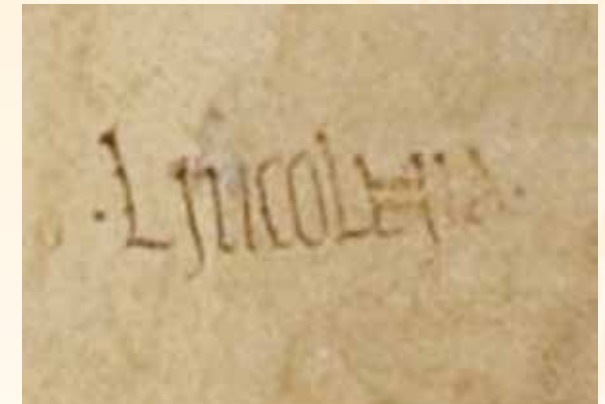 ·LINCOLNIA·